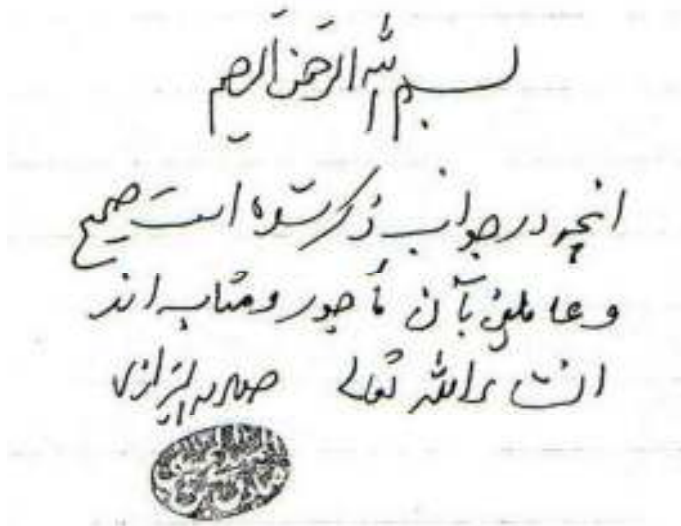 بسم الله الرحمن الرحیم
انچه در جواب ذکر شده است صحیح
و عاملین بآن مأجور و مثاب اند
انشاءالله تعالی صدرالدین الشیرازی